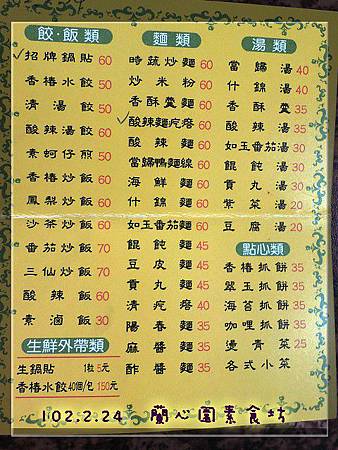 餃·飯類
招牌鍋貼 60
香椿水餃 50
清湯餃 50
酸辣湯餃 60
素蚵仔煎 50
香椿炒飯 60
鳳梨炒飯 60
沙茶炒飯 60
番茄炒飯 70
三仙炒飯 70
酸辣飯 60
素滷飯 30
生鮮外帶類
生鍋貼 1粒 5元
香椿水餃 40個/包 150元
麵類
時蔬炒麵 60
炒米粉 60
香酥羹麵 60
酸辣麵疙瘩 60
酸辣麵 60
當歸鴨麵線 60
海鮮麵 60
什錦麵 60
如玉番茄麵 60
餛飩麵 45
豆皮麵 45
貢丸麵 45
清疙瘩 40
陽春麵 35
麻醬麵 35
炸醬麵 35
湯類
當歸湯 40
什錦湯 40
香酥羹 35
酸辣湯 35
如玉番茄湯 30
餛飩湯 30
貢丸湯 30
紫菜湯 20
豆腐湯 20
點心類
香椿抓餅 35
翠玉抓餅 35
海苔抓餅 35
咖哩抓餅 35
燙青菜 25
各式小菜
102.2.24 蘭心園素食坊